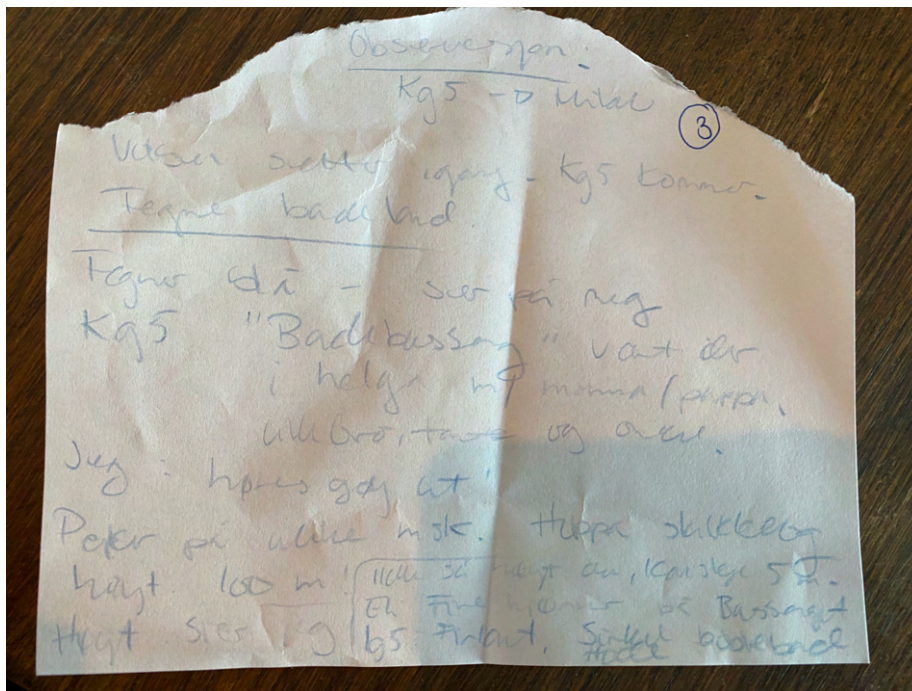 Observasjon:
Kg5 → Mital
3
Voksen setter igang - Kg5 kommer.
Tegne badeland
Tegner blå - ser på meg
Kg5 "Badebasseng" vært der
i helga m/ mamma/pappa,
lillebror, tante og onkel.
Jeg: høres gøy ut!
Peker på ulike misk. Huppa skikkelig
høyt. 100 m! "Ikke så høyt da, kanskje 5 m.
Høyt sier jeg Eh Fire hjørner på Bassenget
Kg5: Firkant, Sirkel badeland